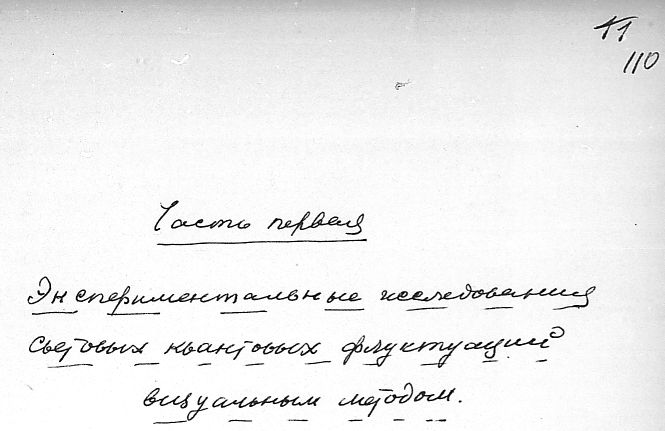 11
110
Часть первая
Экспериментальные исследования
световых квантовых флуктуаций
визуальным методом.